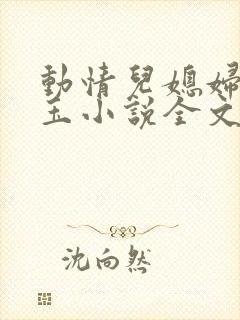 動情兒媳婦
玉小說全文
沈向然